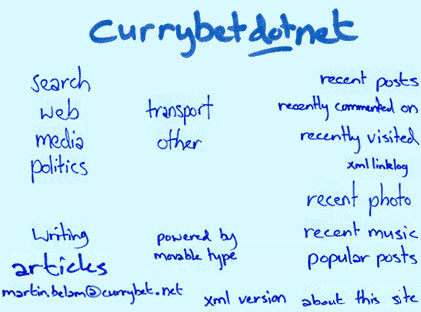 currybetdotnet
search
web
media
politics
transport
other
recent posts
recently commented on
recently visited
xml linklog
recent photo
recent music
popular posts
writing
articles
martin.belam@currybet.net
powered by
movable type
xml version
about this site